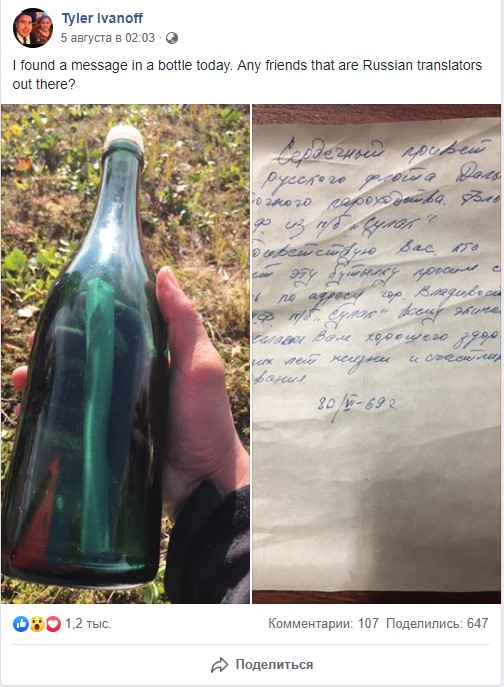 Tyler Ivanoff
5 августа в 02:03 ·
I found a message in a bottle today. Any friends that are Russian translators
out there?
Сердечный привет
русского флота Даль
очного пароходства.
ф из п/б „Сулак"
Вас кто
ет эту бутылку просим с
ь по адресу гор. Владивост
ф. п/б „Сулак" всему экипа
Вам хорошего здор
их лет жизни и счастлив
вания
20/VI-69 г.
1,2 тыс.
Комментарии: 107 Поделились: 647
Поделиться